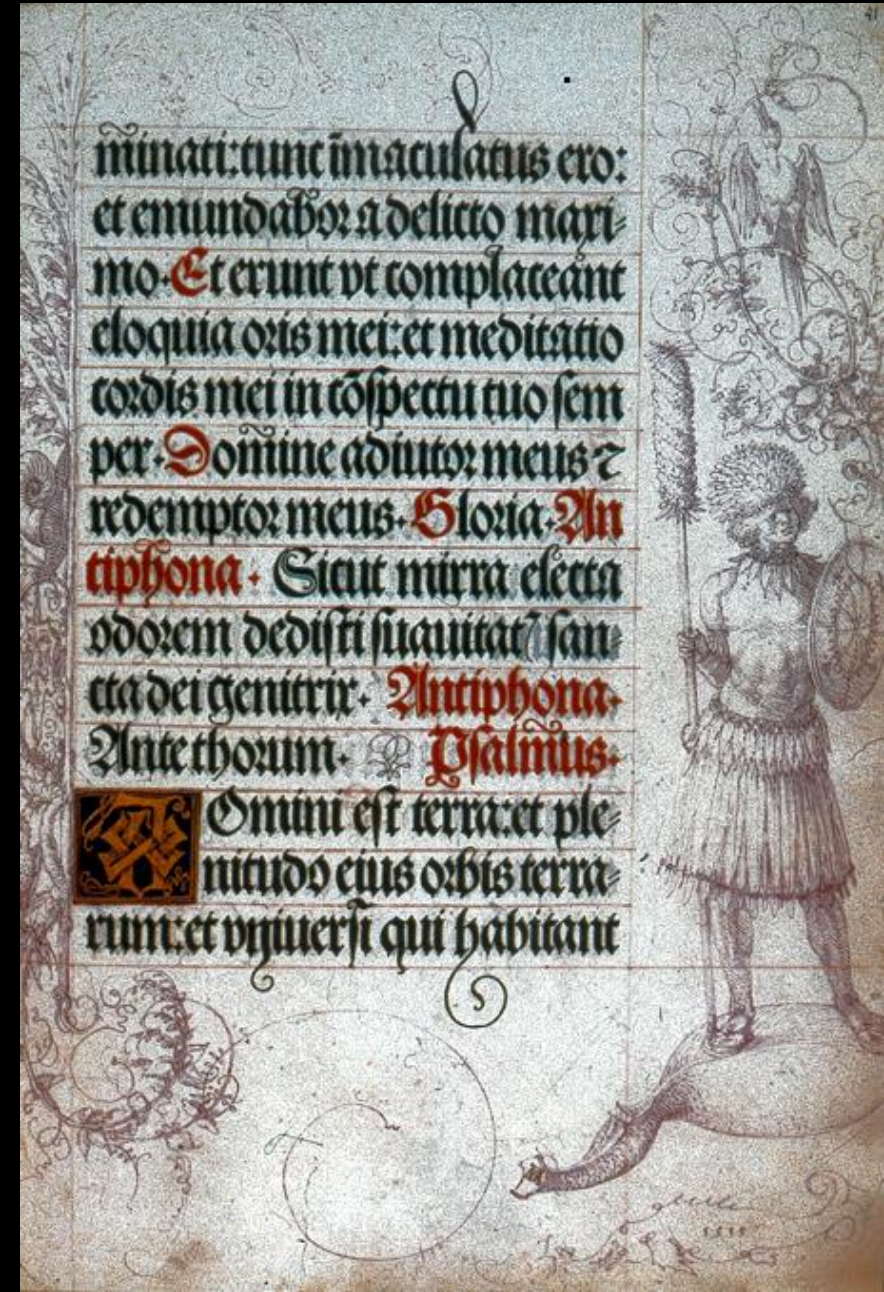 41
m̄inati:tunc īmaculatus ero:
et emundabor a delicto maxi-
mo. Et erunt vt complaceant
eloquia oris mei: et meditatio
cordis mei in cōspectu tuo sem
per. Domine adiutor meus ⁊
redemptor meus. Gloria. An
tiphona. Sicut mirra electa
odorem dedisti suauitat san-
cta dei genitrix. Antiphona.
Ante thorum. Psalmus.
Omini est terra: et ple-
nitudo eius orbis terra-
rum: et vniuersi qui habitant